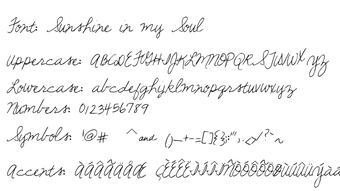 Font: Sunshine in my Soul
Uppercase: ABCDEFGHIJKLMNOPQRSTUVWXYZ
Lowercase: abcdefghijklmnopqrstuvwxyz
Numbers: 0123456789
Symbols: !@# ^ and ()_-+-=[]{};:"',.<>/?`~
Accents: